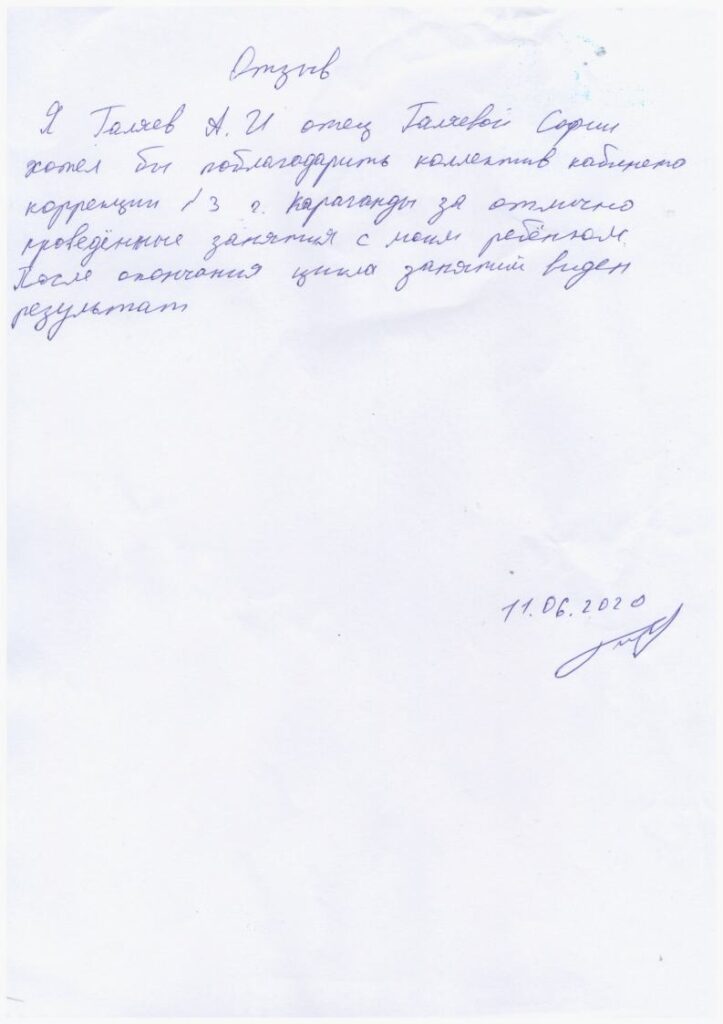 Отзыв
Я Галяев А.И отец Галяевой Софии
хотел бы поблагодарить коллектив кабинета
коррекции №3 г. Караганды за отлично
проведённые занятия с моим ребёнком.
После окончания цикла занятий виден
результат
11.06.2020